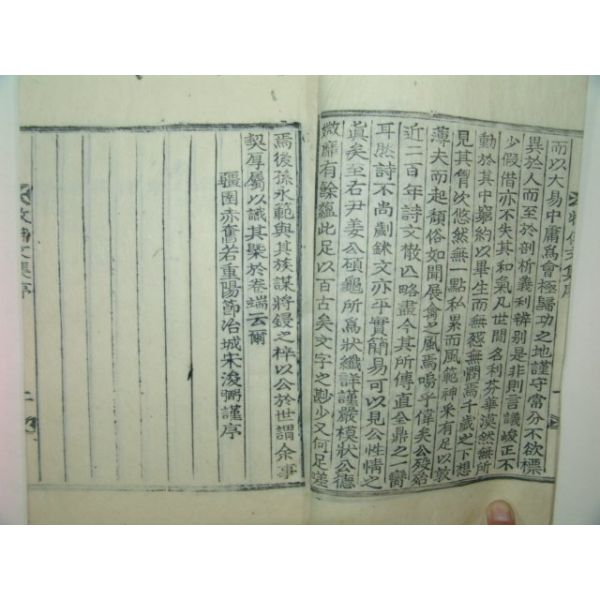 而以大易中庸爲會極歸功之地謹守當分不欲標
異於人而至於剖析義利辨别是非則言議峻正不
少假借亦不失其和氣凡世間名利芬華漠然無所
動於其中窮約以畢生而無怨無悔焉千歲之下想
見其胷次悠然無一點私累而風範神采有足以敦
薄夫而起頹俗如聞展禽之風焉嗚乎偉矣公歿給
近二百年詩文散亡略盡今其所傳直全鼎之一臠
耳然詩不尚劌鉥文亦平實簡易可以見公性情之
眞矣至石尹姜公碩龜所爲狀纖詳謹嚴模狀公德
微靡有餘蘊此足以百古矣文字之尠少又何足
焉後孫永範與其族謀將鋟之梓以公於世謂余事
契厚屬以識其槩於卷端云爾
疆圉赤奮若重陽節冶城宋浚弼謹序
文集序
二
文集序
一